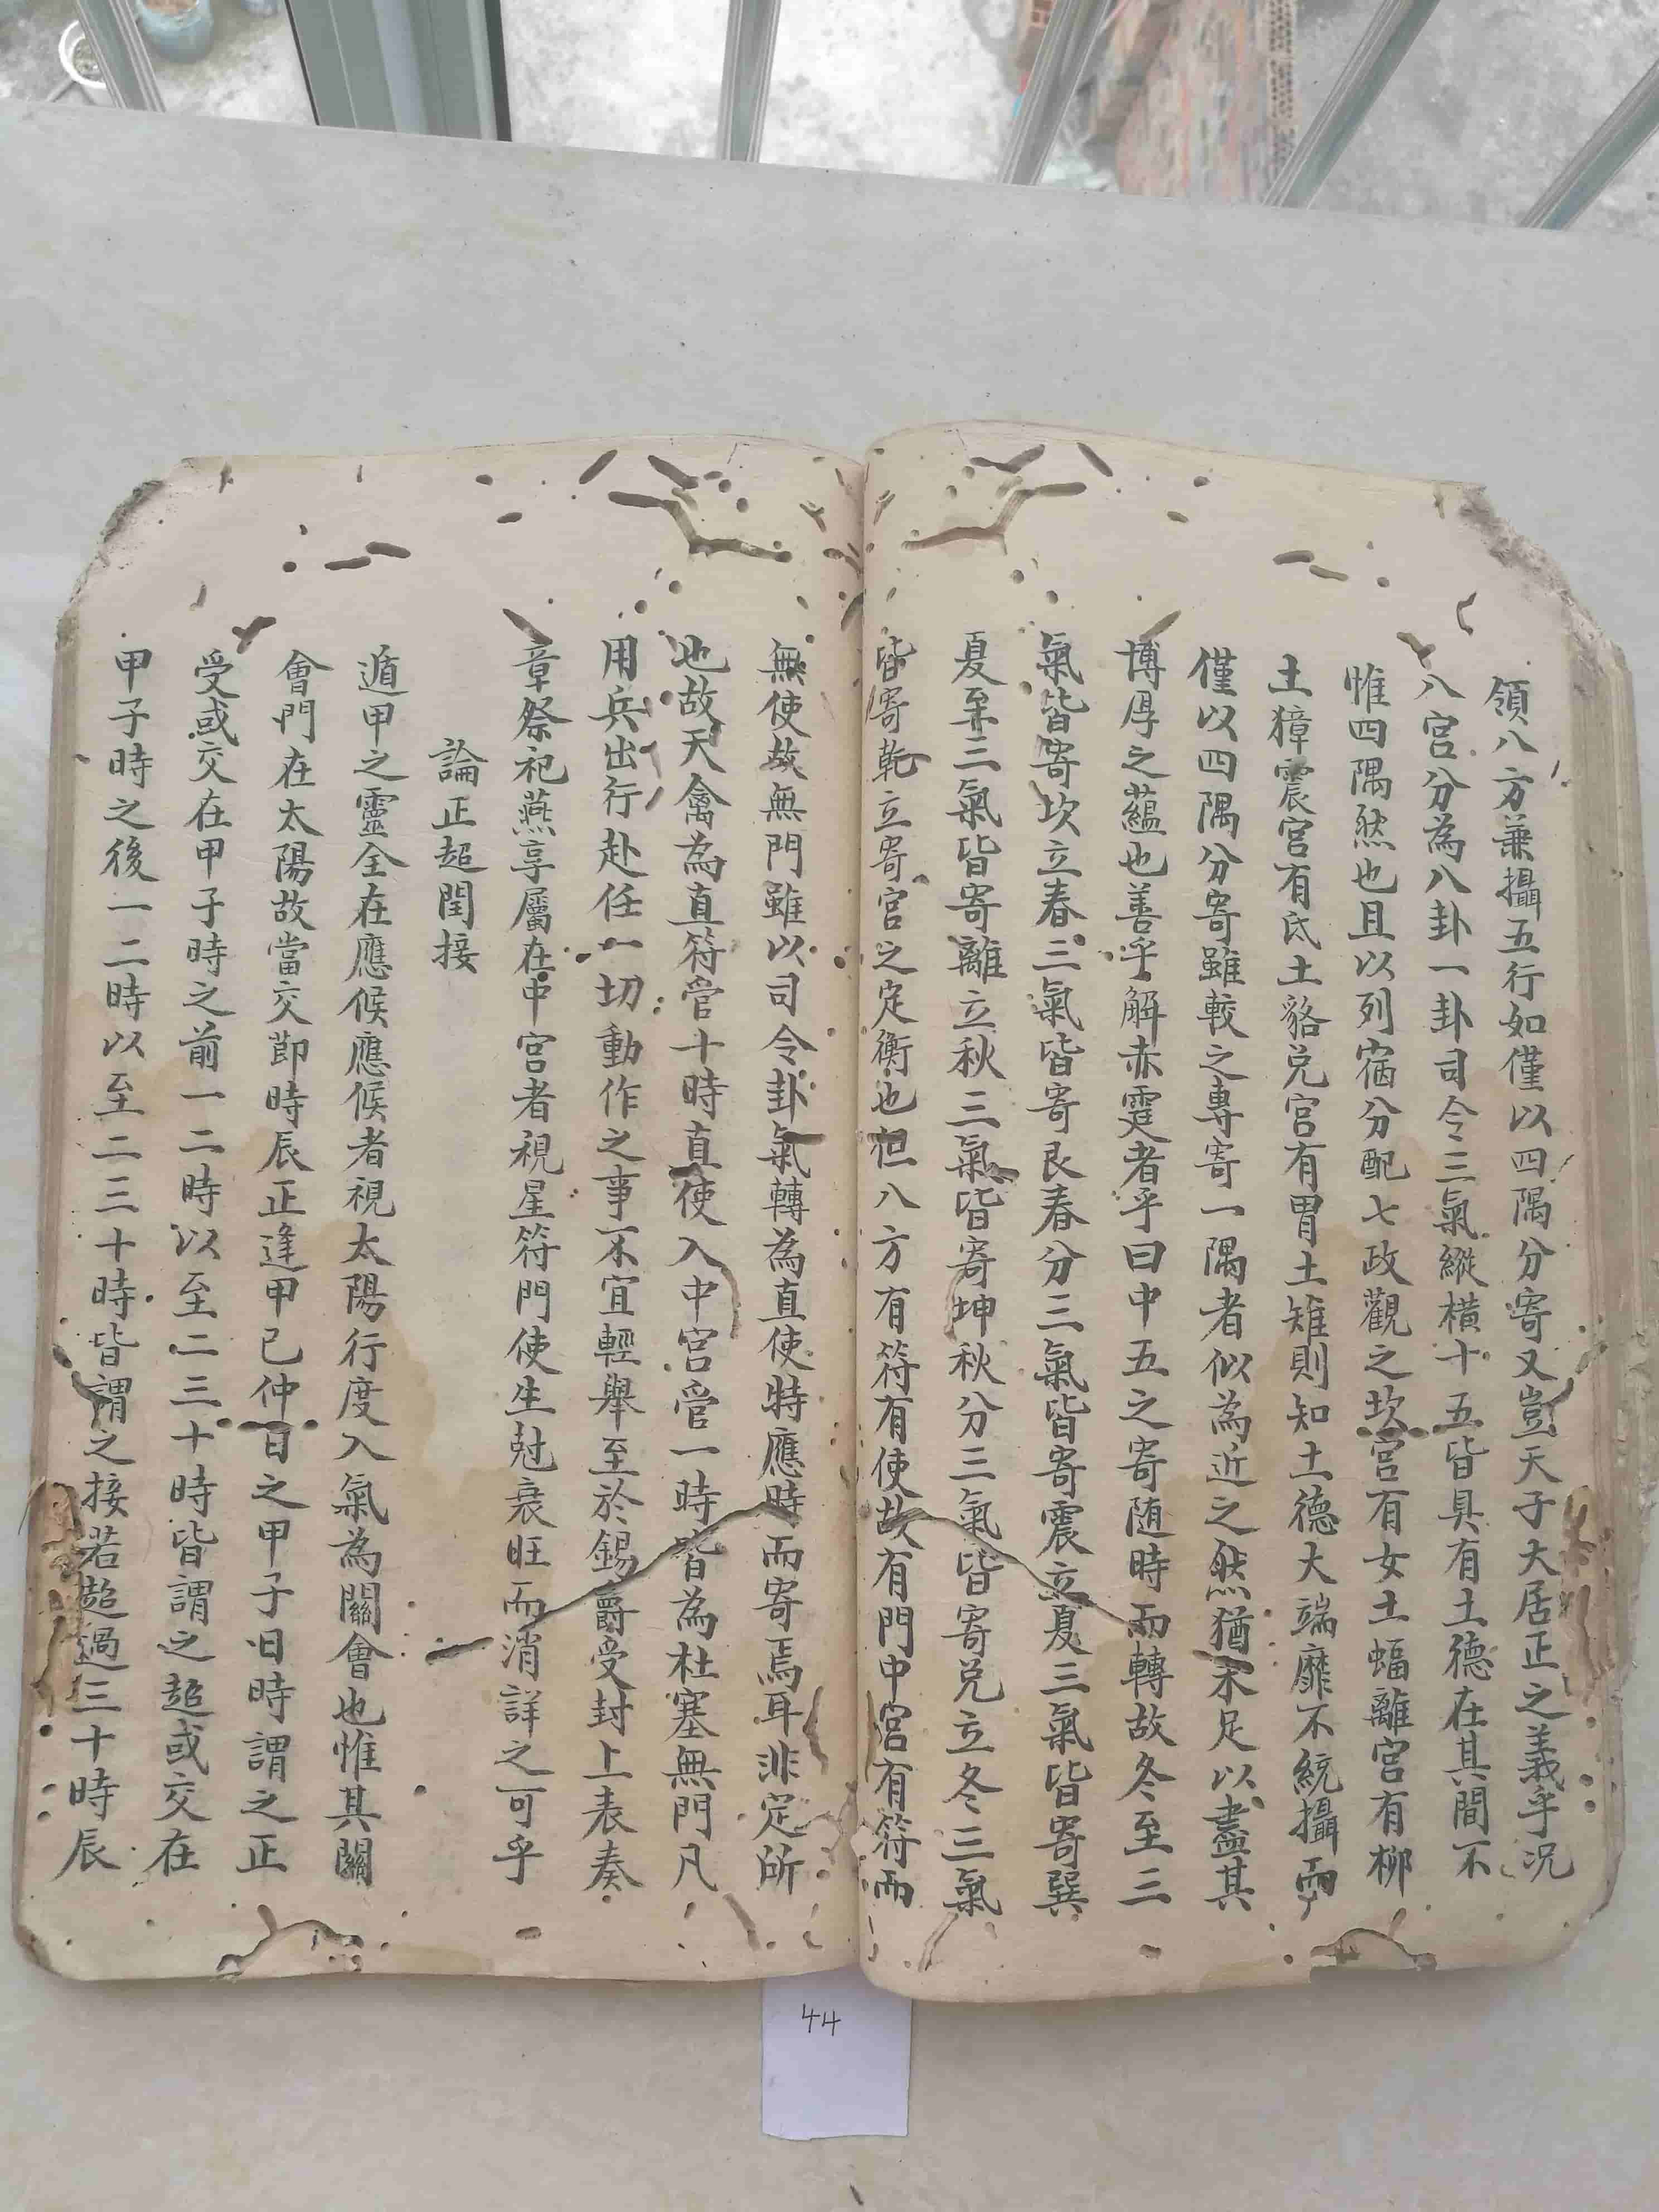 領八方兼攝五行如僅以四隅分寄又豈天子大居正之義乎况
八宮分為八卦一卦司令三氣縱橫十五皆具有土德在其間不
惟四隅然也且以列宿分配七政觀之坎宮有女土蝠離宮有柳
土獐震宮有氐土貉兑宮有胃土雉則知土德大端靡不統攝而
僅以四隅分寄雖較之專寄一隅者似為近之然猶未足以盡其
博厚之蘊也善乎解赤霆者乎曰中五之寄随時而轉故冬至三
氣皆寄坎立春三氣皆寄艮春分三氣皆寄震立夏三氣皆寄巽
夏至三氣皆寄離立秋三氣皆寄坤秋分三氣皆寄兑立冬三氣
皆寄乾立寄宮之定衡也但八方有符有使故有門中宮有符而
無使故無門雖以司令卦氣轉為直使特應時而寄焉耳非定所
也故天禽為直符管十時直使入中宮管一時皆為杜塞無門凡
用兵出行赴任一切動作之事不宜輕舉至於錫爵受封上表奏
章祭祀燕享屬在中宮者視星符門使生尅衰旺而消詳之可乎
論正超閏接
遁甲之靈全在應候應候者視太陽行度入氣為關會也惟其關
會門在太陽故當交節時辰正逢甲已仲日之甲子日時謂之正
受或交在甲子時之前一二時以至二三十時皆謂之超或交在
甲子時之後一二時以至二三十時皆謂之接若超過三十時辰
44